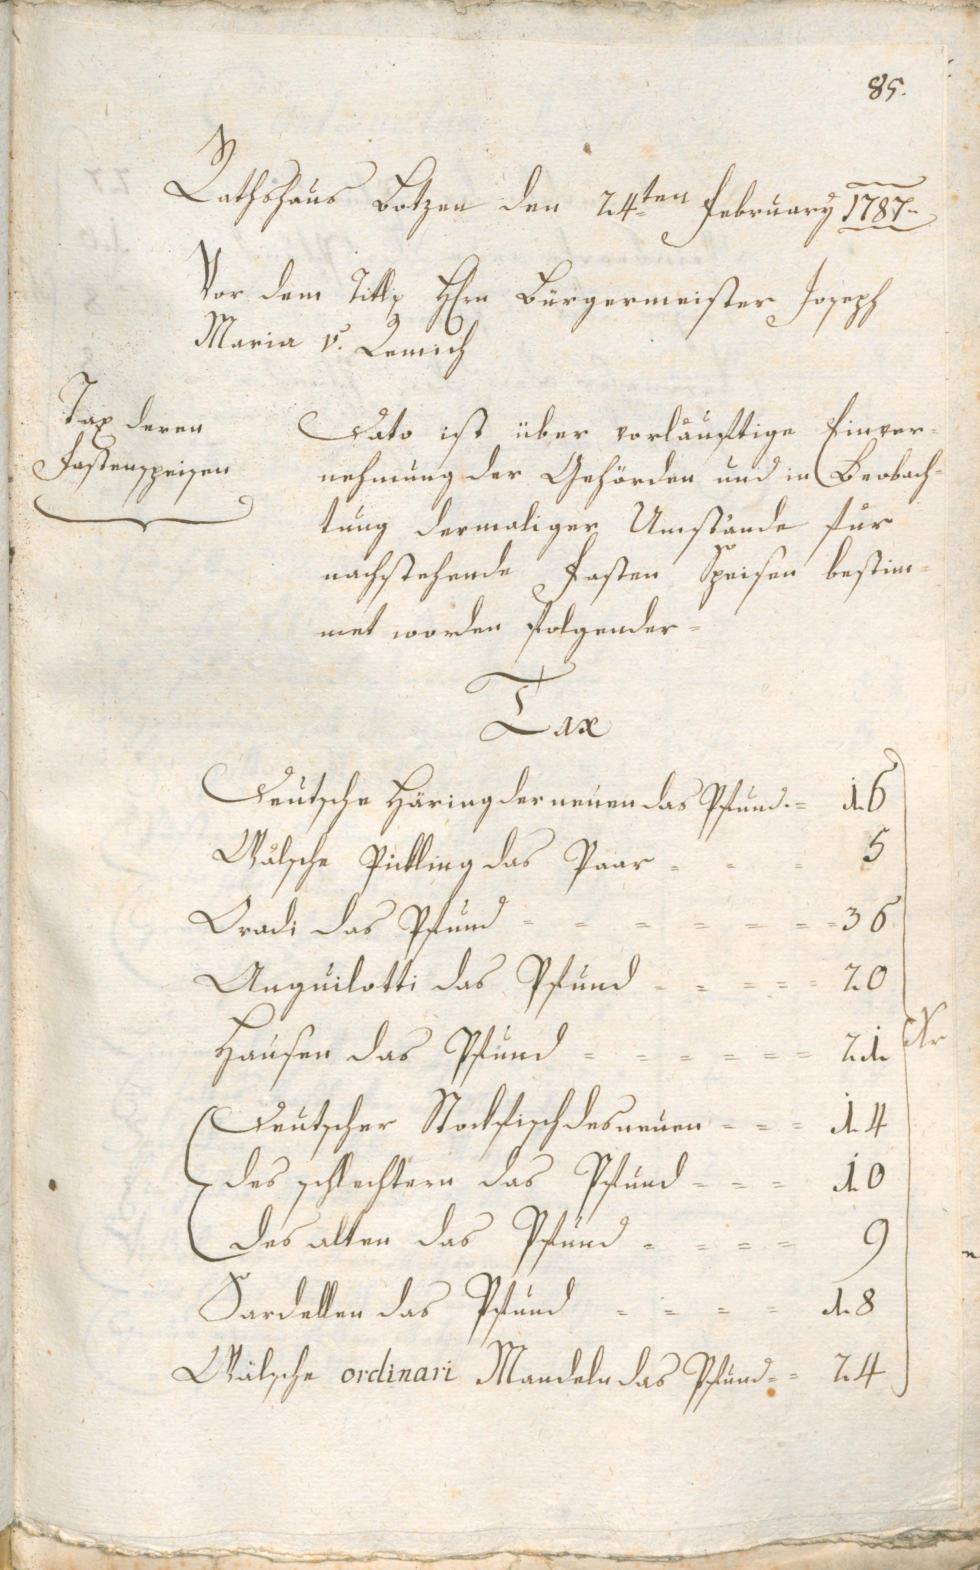 85.
Rathshaus Botzen den 24ten February 1787.
Vor dem Titl. Hrn Bürgermeister Joseph
Maria v. Zemich
Tax deren
Fastenspeisen
Dato ist über vorläuftige Einver=
nehmung der Behörden und in Beobach=
tung dermaliger Umstände für
nachstehende Fasten Speisen bestim=
met worden folgender=
Tax
Deutsche Häring der neuen das Pfund. = 16
Wälsche Pickling das Paar - - = 5
Oradi das Pfund = = = = = = = 36
Anguilotti das Pfund - = = = = 20
Hausen das Pfund = = = = = = 21
Kr
Deutscher Stockfisch des neuen = = = 14
des schlechtern das Pfund = = = 10
des alten das Pfund = = = = 9
Sardellen das Pfund = = = = 18
Wälsche ordinari Mandeln das Pfund = = 24